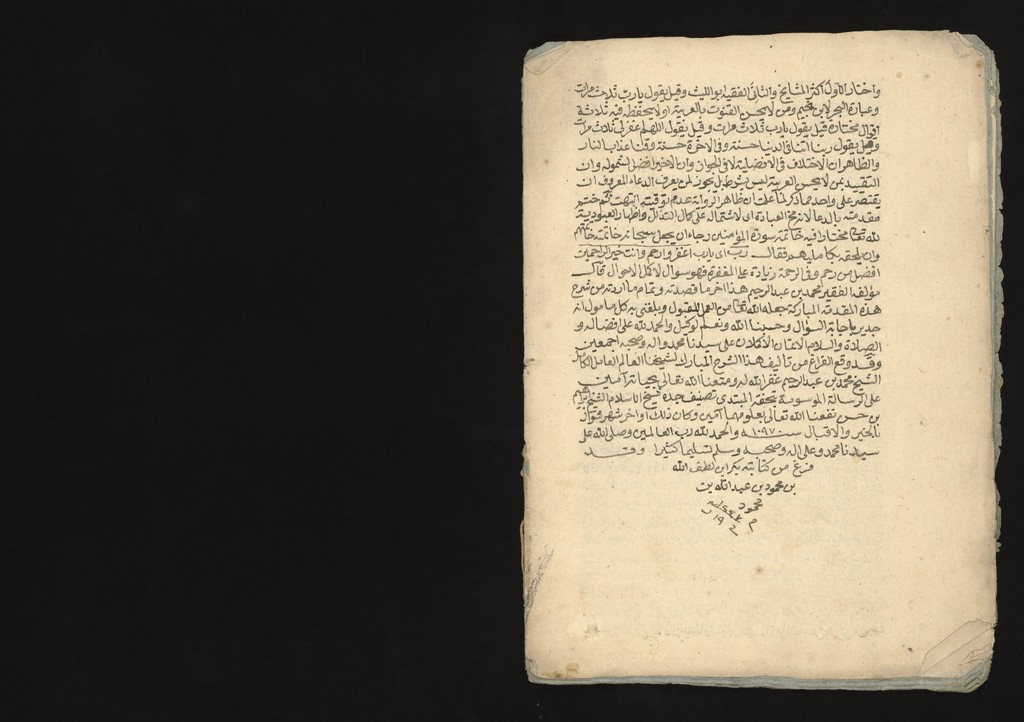 واختار الاول اكثر المشايخ والثاني الفقيه ابو الليث وقيل يقول يا رب ثلاث مرات
وعبارة البحر لابن نجيم ومن لا يحسن القنوت بالعربية او لا يحفظه فيه ثلاثة
اقوال مختارة قيل يقول يا رب ثلاث مرات وقيل يقول اللهم اغفر لي ثلاث مرات
وقيل يقول ربنا اتنا في الدنيا حسنة وفي الاخرة حسنة وقنا عذاب النار
والظاهر ان الاختلاف في الافضلية لا في الجواز وان الاخير افضل لشموله وان
التقييد بمن لا يحسن العربية ليس بشرط بل يجوز لمن يعرف الدعاء المعروف ان
يقتصر على واحد مما ذكر لما علمت ان ظاهر الرواية عدم توقيته انتهت ثم ختم
مقدمته بالدعا لانه مخ العبادة اي لاشتماله على كمال التذلل واظهار العبودية
لله تعالى مختارا فيه خاتمة سورة المؤمنين رجاء ان يجعل سبحانه خاتمته خاتمتهم
وان يلحقه بكاملهم فقال رب اي يا رب اغفر وارحم وانت خير الراحمين
افضل من رحم وفي الرحمة زيادة على المغفرة فهو سوال لاكمل الاحوال قال
مؤلفه الفقير محمد بن عبد الرحيم هذا اخر ما قصدته وتمام ما اردته من شرح
هذه المقدمة المباركة جعله الله تعالى من العمل المقبول وبلغني به كل مامول انه
جدير باجابة السؤال وحسبنا الله ونعم الوكيل والحمد لله على افضاله و
الصلاة والسلام الاتمان الاكملان على سيدنا محمد واله وصحبه اجمعين
وقد وقع الفراغ من تاليف هذا الشرح المبارك لشيخنا العالم العامل الكامل
الشيخ محمد بن عبد الرحيم غفر الله له ومتعنا الله تعالى بحياته آمين
على الرسالة الموسومة بتحفة المبتدي تصنيف جده شيخ الاسلام الشيخ ابراهيم
بن حسن نفعنا الله تعالى بعلومهما آمين وكان ذلك اواخر شهر شوال
بالخير والاقبال سنة ١٠٩٧ والحمد لله رب العالمين وصلى الله على
سيدنا محمد وعلى اله وصحبه وسلم تسليما كثيرا وقد
فرغ من كتابته بكر ابن لطف الله
بن محمود بن عبد الله بن
محمود